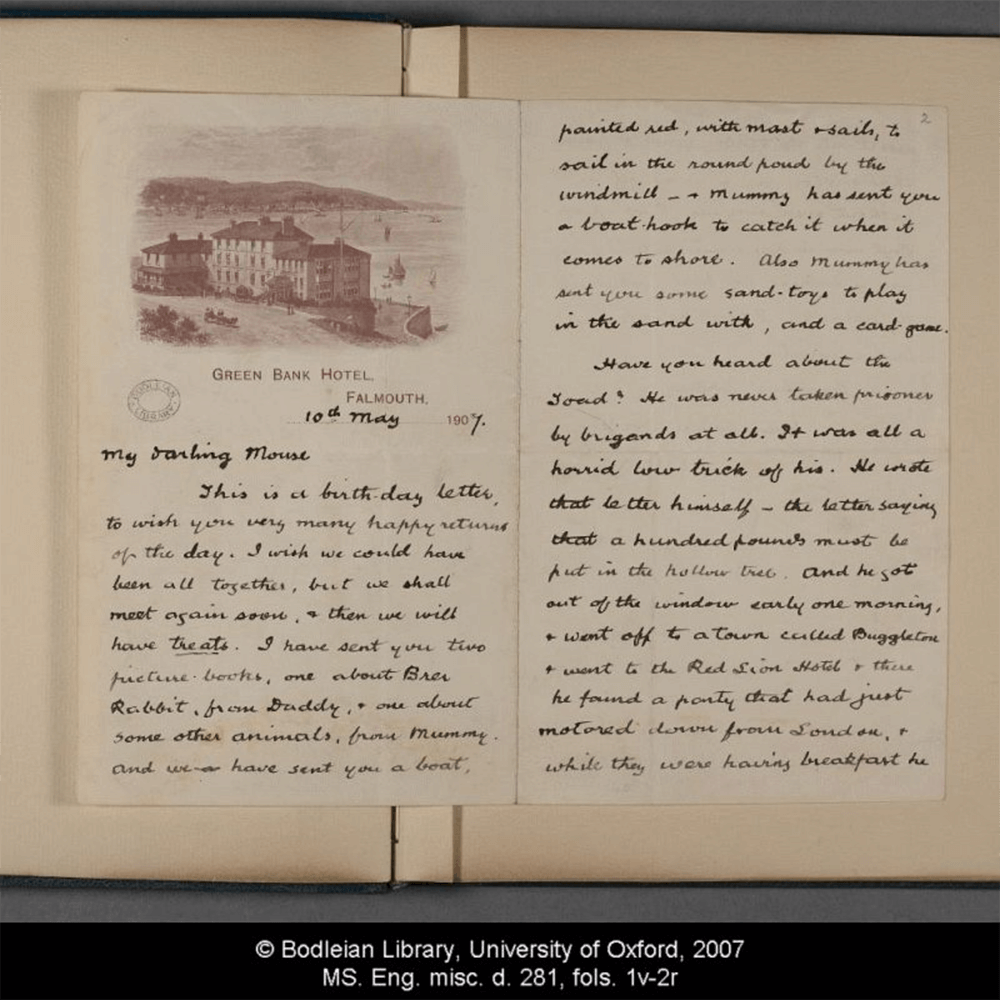 GREEN BANK HOTEL,
FALMOUTH,
10th May 1907.
My Darling Mouse
This is a birth-day letter,
to wish you very many happy returns
of the day. I wish we could have
been all together, but we shall
meet again soon, & then we will
have treats. I have sent you two
picture-books, one about Brer
Rabbit, from Daddy, & one about
some other animals, from Mummy.
And we have sent you a boat,
2
painted red, with mast & sails, to
sail in the round pond by the
windmill – & Mummy has sent you
a boat-hook to catch it when it
comes to shore. Also Mummy has
sent you some sand-toys to play
in the sand with, and a card-game.
Have you heard about the
Toad? He was never taken prisoner
by brigands at all. It was all a
horrid low trick of his. He wrote
that letter himself – the letter saying
that a hundred pounds must be
put in the hollow tree. And he got
out of the window early one morning,
& went off to a town called Buggleton
& went to the Red Lion Hotel & there
he found a party that had just
motored down from London, &
while they were having breakfast he
BODLEIAN LIBRARY
© Bodleian Library, University of Oxford, 2007
MS. Eng. misc. d. 281, fols. 1v-2r